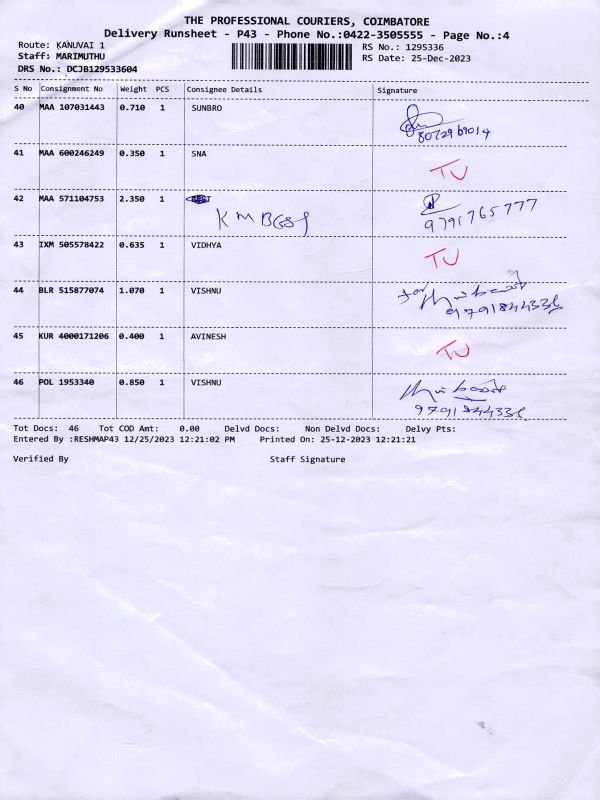 THE PROFESSIONAL COURIERS, COIMBATORE
Delivery Runsheet - P43 - Phone No.:0422-3505555 - Page No.:4
Route: KANUVAI 1
RS No.: 1295336
Staff: MARIMUTHU
RS Date: 25-Dec-2023
DRS No.: DCJB129533604
S No Consignment No Weight PCS Consignee Details Signature
40 MAA 107031443 0.710 1 SUNBRO
8072969014
41 MAA 600246249 0.350 1 SNA TU
42 MAA 571104753 2.350 1
9791765777
43 IXM 505578422 0.635 1 VIDHYA TU
44 BLR 515877074 1.070 1 VISHNU
45 KUR 4000171206 0.400 1 AVINESH TU
46 POL 1953340 0.850 1 VISHNU
Tot Docs: 46 Tot COD Amt: 0.00 Delvd Docs: Non Delvd Docs: Delvy Pts:
Entered By :RESHMAP43 12/25/2023 12:21:02 PM Printed On: 25-12-2023 12:21:21
Verified By Staff Signature